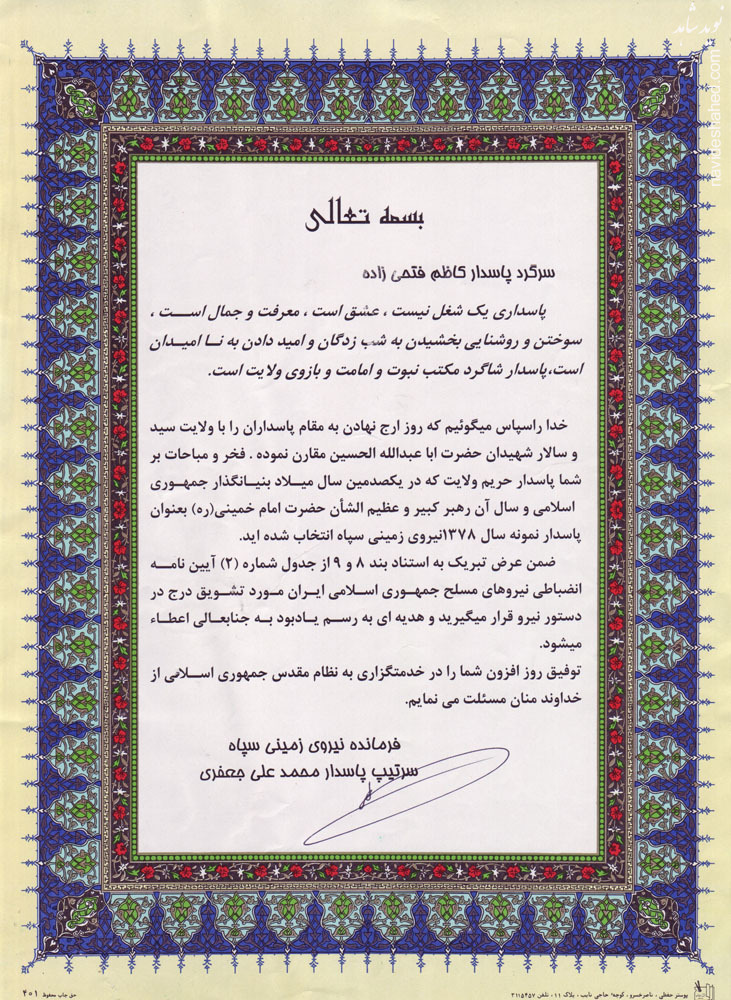 نوید شاهد
navideshahed.com
بسمه تعالی
سرگرد پاسدار کاظم فتحی زاده
پاسداری یک شغل نیست ، عشق است ، معرفت و جمال است ،
سوختن و روشنایی بخشیدن به شب زدگان و امید دادن به نا امیدان
است،پاسدار شاگرد مکتب نبوت و امامت و بازوی ولایت است.
خدا راسپاس میگوئیم که روز ارج نهادن به مقام پاسداران را با ولایت سید
و سالار شهیدان حضرت ابا عبدالله الحسین مقارن نموده . فخر و مباحات بر
شما پاسدار حریم ولایت که در یکصدمین سال میلاد بنیانگذار جمهوری
اسلامی و سال آن رهبر کبیر و عظیم الشأن حضرت امام خمینی(ره) بعنوان
پاسدار نمونه سال ۱۳۷۸نیروی زمینی سپاه انتخاب شده اید.
ضمن عرض تبریک به استناد بند ۸ و ۹ از جدول شماره (۲) آیین نامه
انضباطی نیروهای مسلح جمهوری اسلامی ایران مورد تشویق درج در
دستور نیرو قرار میگیرید و هدیه ای به رسم یادبود به جنابعالی اعطاء
میشود.
توفیق روز افزون شما را در خدمتگزاری به نظام مقدس جمهوری اسلامی از
خداوند منان مسئلت می نمایم.
فرمانده نیروی زمینی سپاه
سرتیپ پاسدار محمد علی جعفری
پوستر حفظی ، ناصرخسرو ، کوچه حاجی نایب ، پلاک ۱۱ ، تلفن ۳۱۱۵۴۵۷
حق چاپ محفوظ ۴۰۱